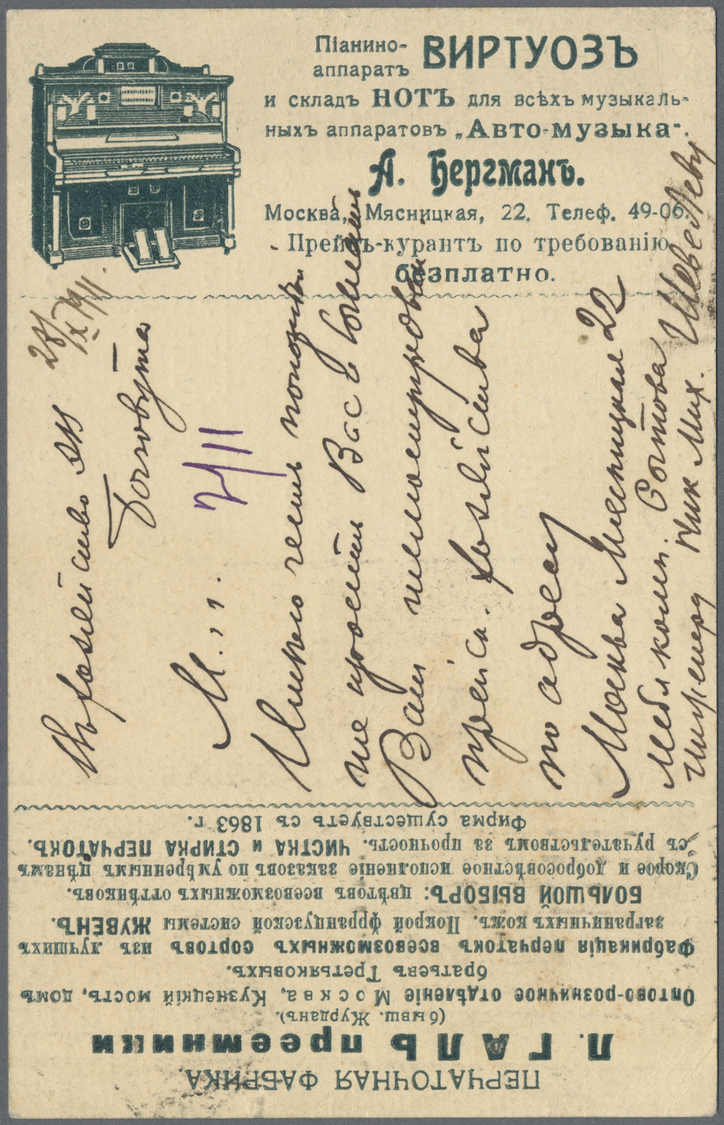 Піанино-
аппаратъ ВИРТУОЗЪ
и складъ НОТЪ для всѣхъ музыкаль-
ныхъ аппаратовъ „Авто-музыка".
А. Бергманъ.
Москва, Мясницкая, 22. Телеф. 49-06.
Прейсъ-курантъ по требованію
безплатно.
28/IX 1911.
Въ хозяйство
М. г.
2/11
Имѣю честь
просить Васъ выслать
Ваш иллюстрирован.
прейсъ. хозяйства
по адресу
Москва Мясницкая 22
Мебл комн. Сытова
Инженеру Ник Мих. Шевелеву
ПЕРЧАТОЧНАЯ ФАБРИКА
Л. ГАЛЬ преемники
(бывш. Журданъ).
Оптово-розничное отдѣленіе Москва, Кузнецкій мостъ, домъ
братьевъ Третьяковыхъ.
Фабрикація перчатокъ всевозможныхъ сортовъ изъ лучшихъ
заграничныхъ кожъ. Покрой французской системы ЖУВЕНЪ.
БОЛЬШОЙ ВЫБОРЪ: цвѣтовъ всевозможныхъ оттѣнковъ.
Скорое и добросовѣстное исполненіе заказовъ по умѣреннымъ цѣнамъ
съ ручательствомъ за прочность. ЧИСТКА и СТИРКА ПЕРЧАТОКЪ.
Фирма существуетъ съ 1863 г.